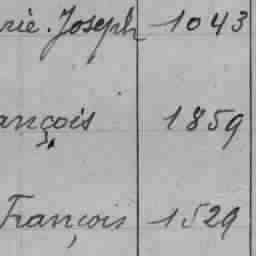 rie. Joseph 1043
ançois 1859
François 1529